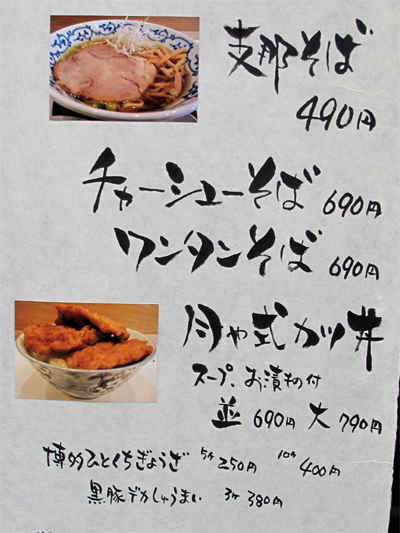 支那そば
490円
チャーシューそば 690円
ワンタンそば 690円
月や式カツ丼
スープ、お漬物付
並 690円 大 790円
博多ひとくちぎょうざ 5ケ 250円 10ケ 400円
黒豚デカしゅうまい 3ケ 380円